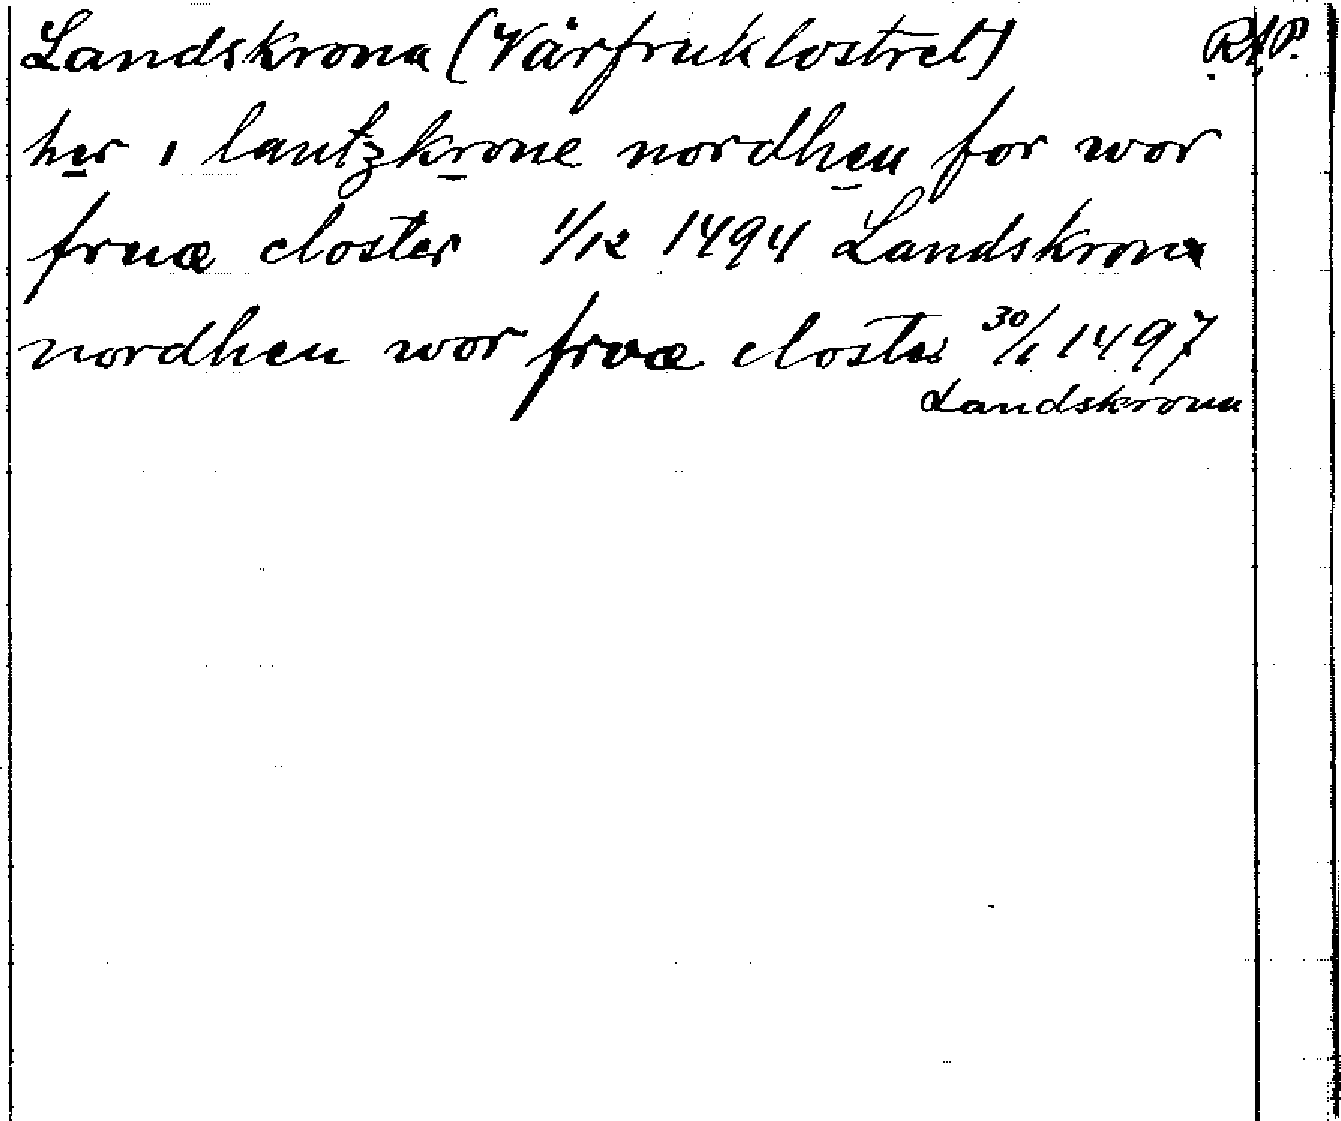 Landskrona (Vårfruklostret) RAP.
her i lantzkrone nordhen for wor
fruæ closter 1/12 1494 Landskrona
nordhen wor frvæ closter 30/1 1497
Landskrona